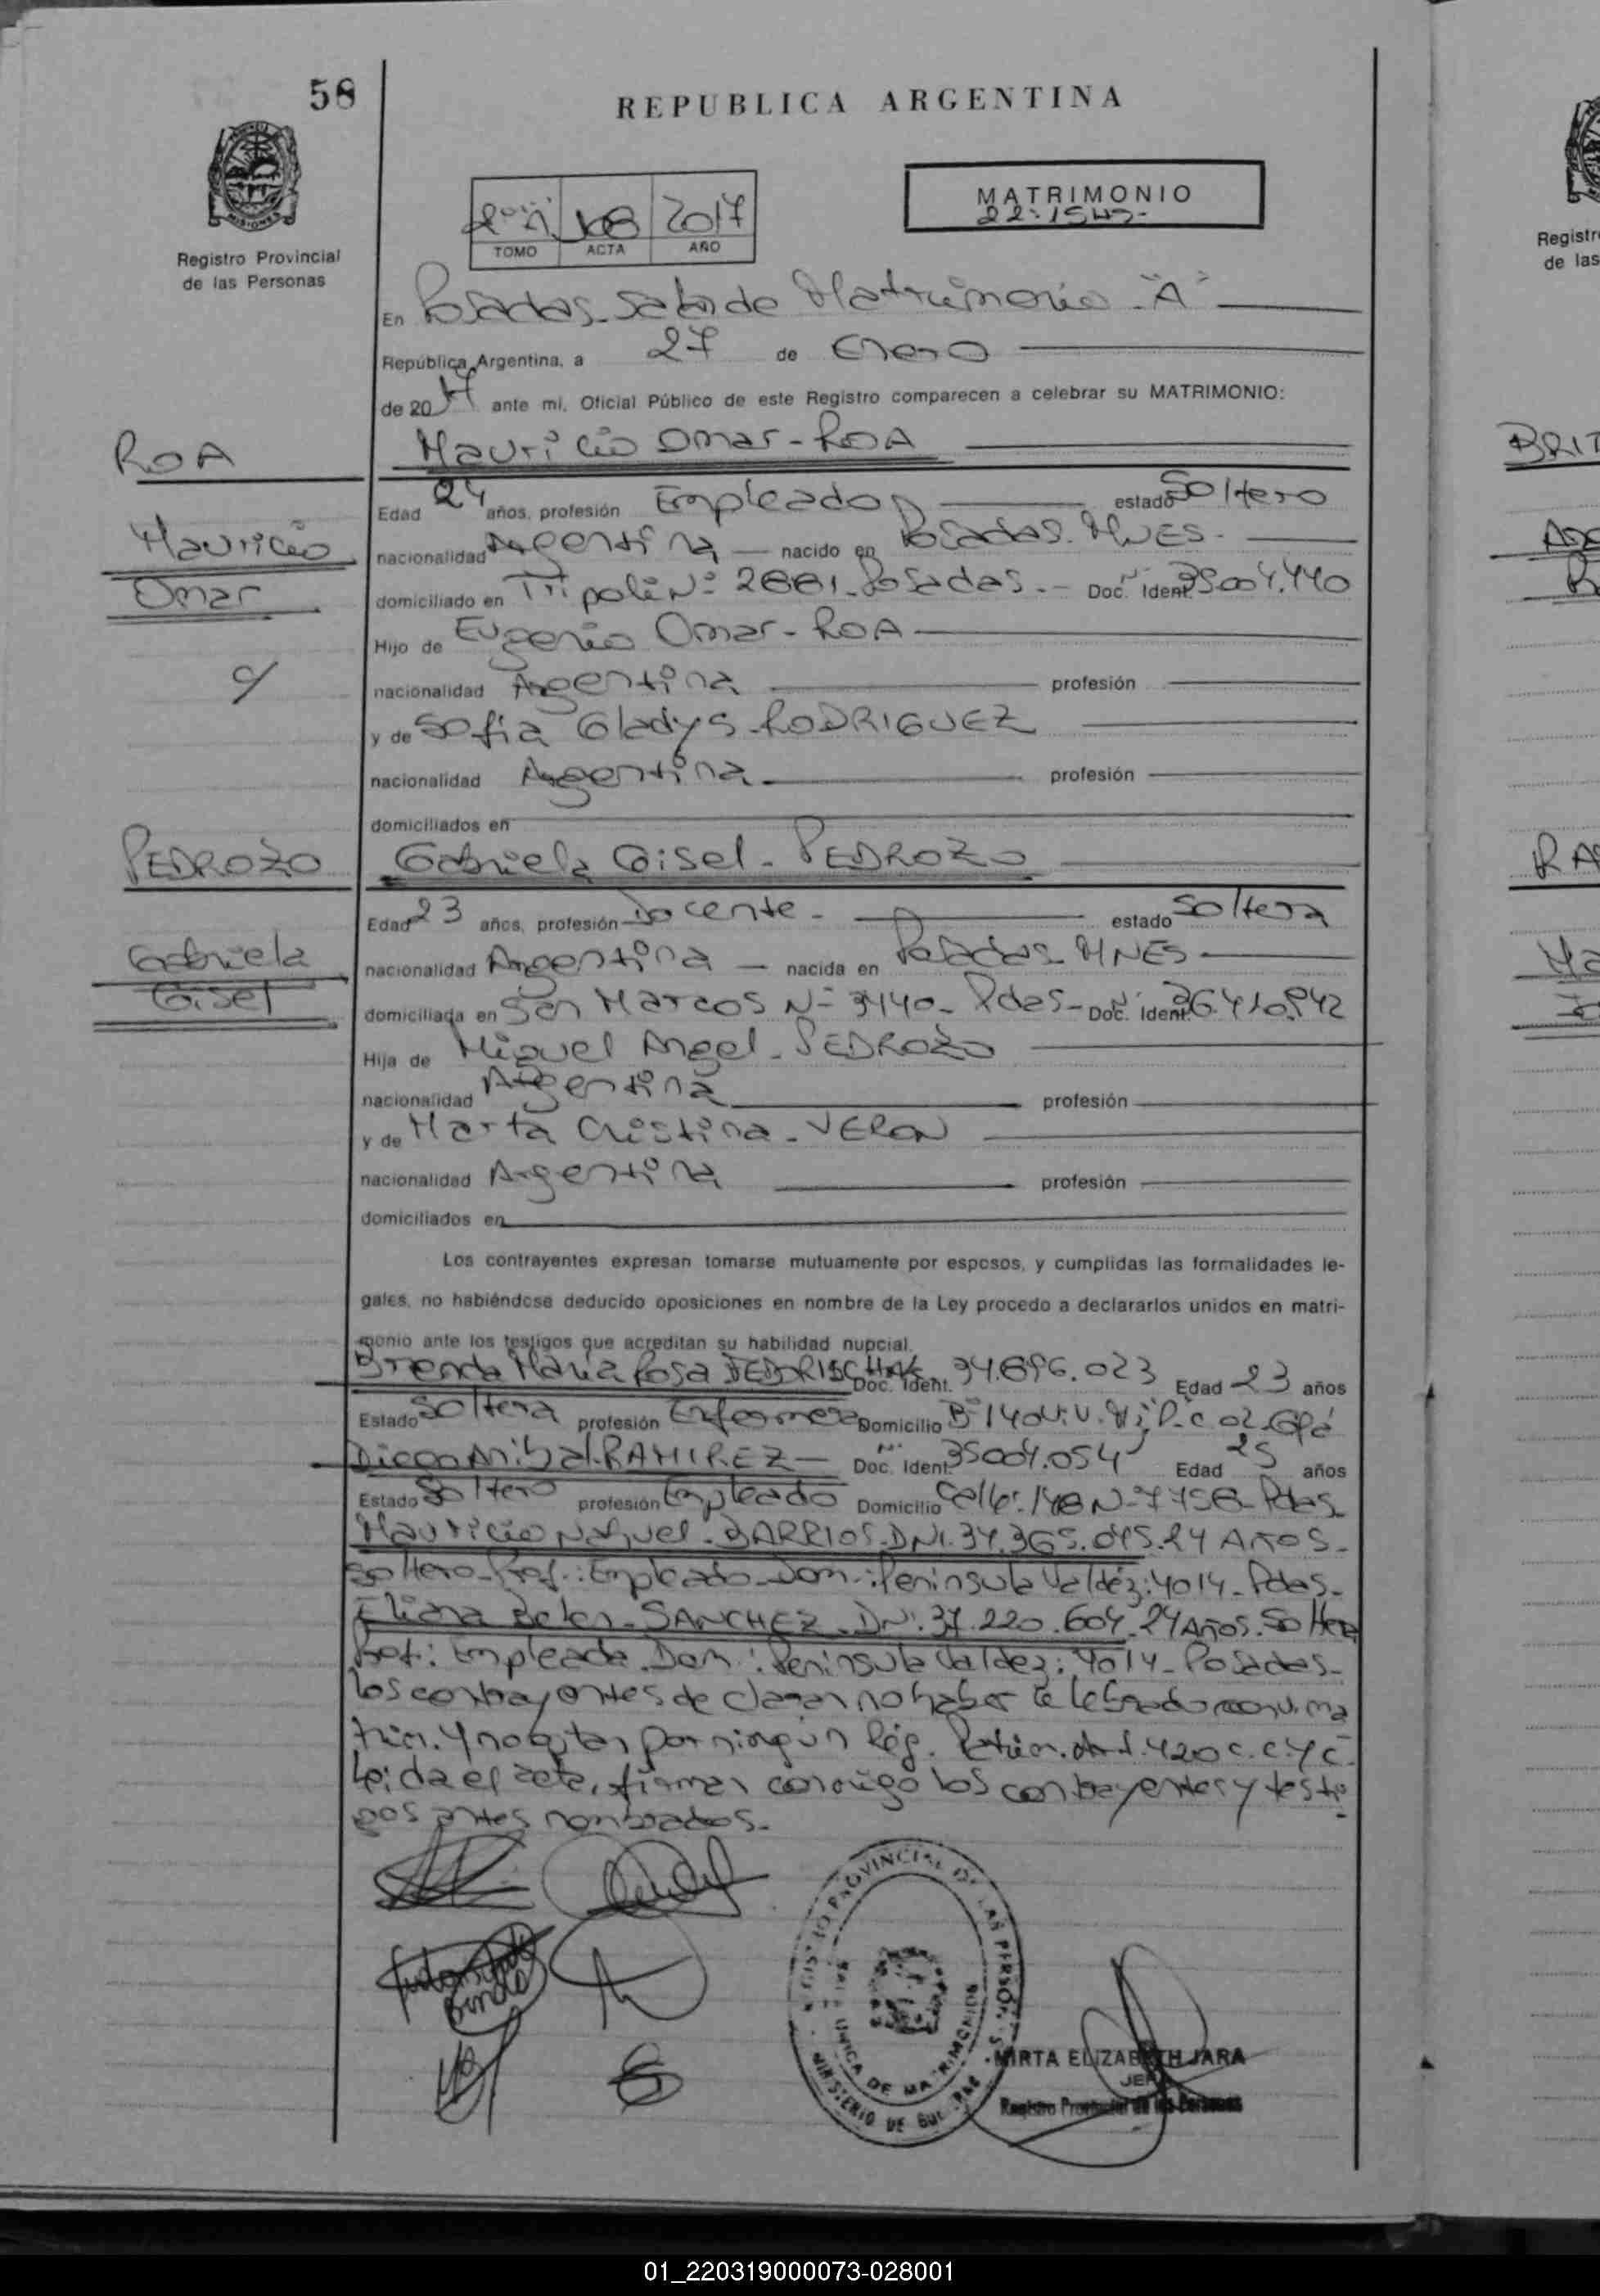 58
REPUBLICA ARGENTINA
MATRIMONIO
22:15HS-
2017
TOMO ACTA AÑO
MISIONES
Registro Provincial
de las Personas
En Posadas-Sala de Matrimonio-"A"
República Argentina, a 27 de Enero
de 2017 ante mí, Oficial Público de este Registro comparecen a celebrar su MATRIMONIO:
ROA
Mauricio Omar-ROA
Edad 24 años, profesión Empleado estado Soltero
Mauricio
Omar
nacionalidad Argentina — nacido en Posadas. MNES.
domiciliado en Tripoli N° 2881-Posadas.- Doc. Ident. 35004.440
Hijo de Eugenio Omar-ROA
c/
nacionalidad Argentina profesión
y de Sofia Gladys-RODRIGUEZ
nacionalidad Argentina profesión
domiciliados en
PEDROZO
Gabriela Gisel-PEDROZO
Edad 23 años, profesión Docente- estado Soltera
Gabriela
Gisel
nacionalidad Argentina — nacida en Posadas-MNES
domiciliada en San Marcos N° 3440- Pdas- Doc. Ident. 36.410.942
Hija de Miguel Angel-PEDROZO
nacionalidad Argentina profesión
y de Marta Cristina-VERON
nacionalidad Argentina profesión
domiciliados en
Los contrayentes expresan tomarse mutuamente por esposos, y cumplidas las formalidades le-
gales, no habiéndose deducido oposiciones en nombre de la Ley procedo a declararlos unidos en matri-
monio ante los testigos que acreditan su habilidad nupcial.
Brenda Maria Rosa Doc. Ident. 34.896.023 Edad 23 años
Estado Soltera profesión Enfermera Domicilio
Diego Anibal-RAMIREZ— Doc. Ident. 35004.054 Edad 25 años
Estado Soltero profesión Empleado Domicilio Calle: 148 N° 7758-Pdas.
Mauricio Nahuel-BARRIOS-DNI.34.365.045.24 AÑOS-
Soltero-Prof.: Empleado-Dom.: Peninsula Valdéz: 4014-Pdas-
Eliana Belen-SANCHEZ-DNI.37.220.604-24 AÑOS. Soltera
Prof: Empleada-Dom.: Peninsula Valdez: 4014-Posadas-
los contrayentes declaran no haber celebrado conv. ma
trim. y no optan por ningún Rég. Patrim. Art. 420 C.C.Y C.
Leida el acta, firman conmigo los contrayentes y testi-
gos antes nombrados.-
REGISTRO PROVINCIAL DE LAS PERSONAS
SALA UNICA DE MATRIMONIOS
MINISTERIO DE
MIRTA ELIZABETH JARA
JEFA
Registro Provincial de las Personas
Registr
de las
BRIT
RA
Ma
01_220319000073-028001